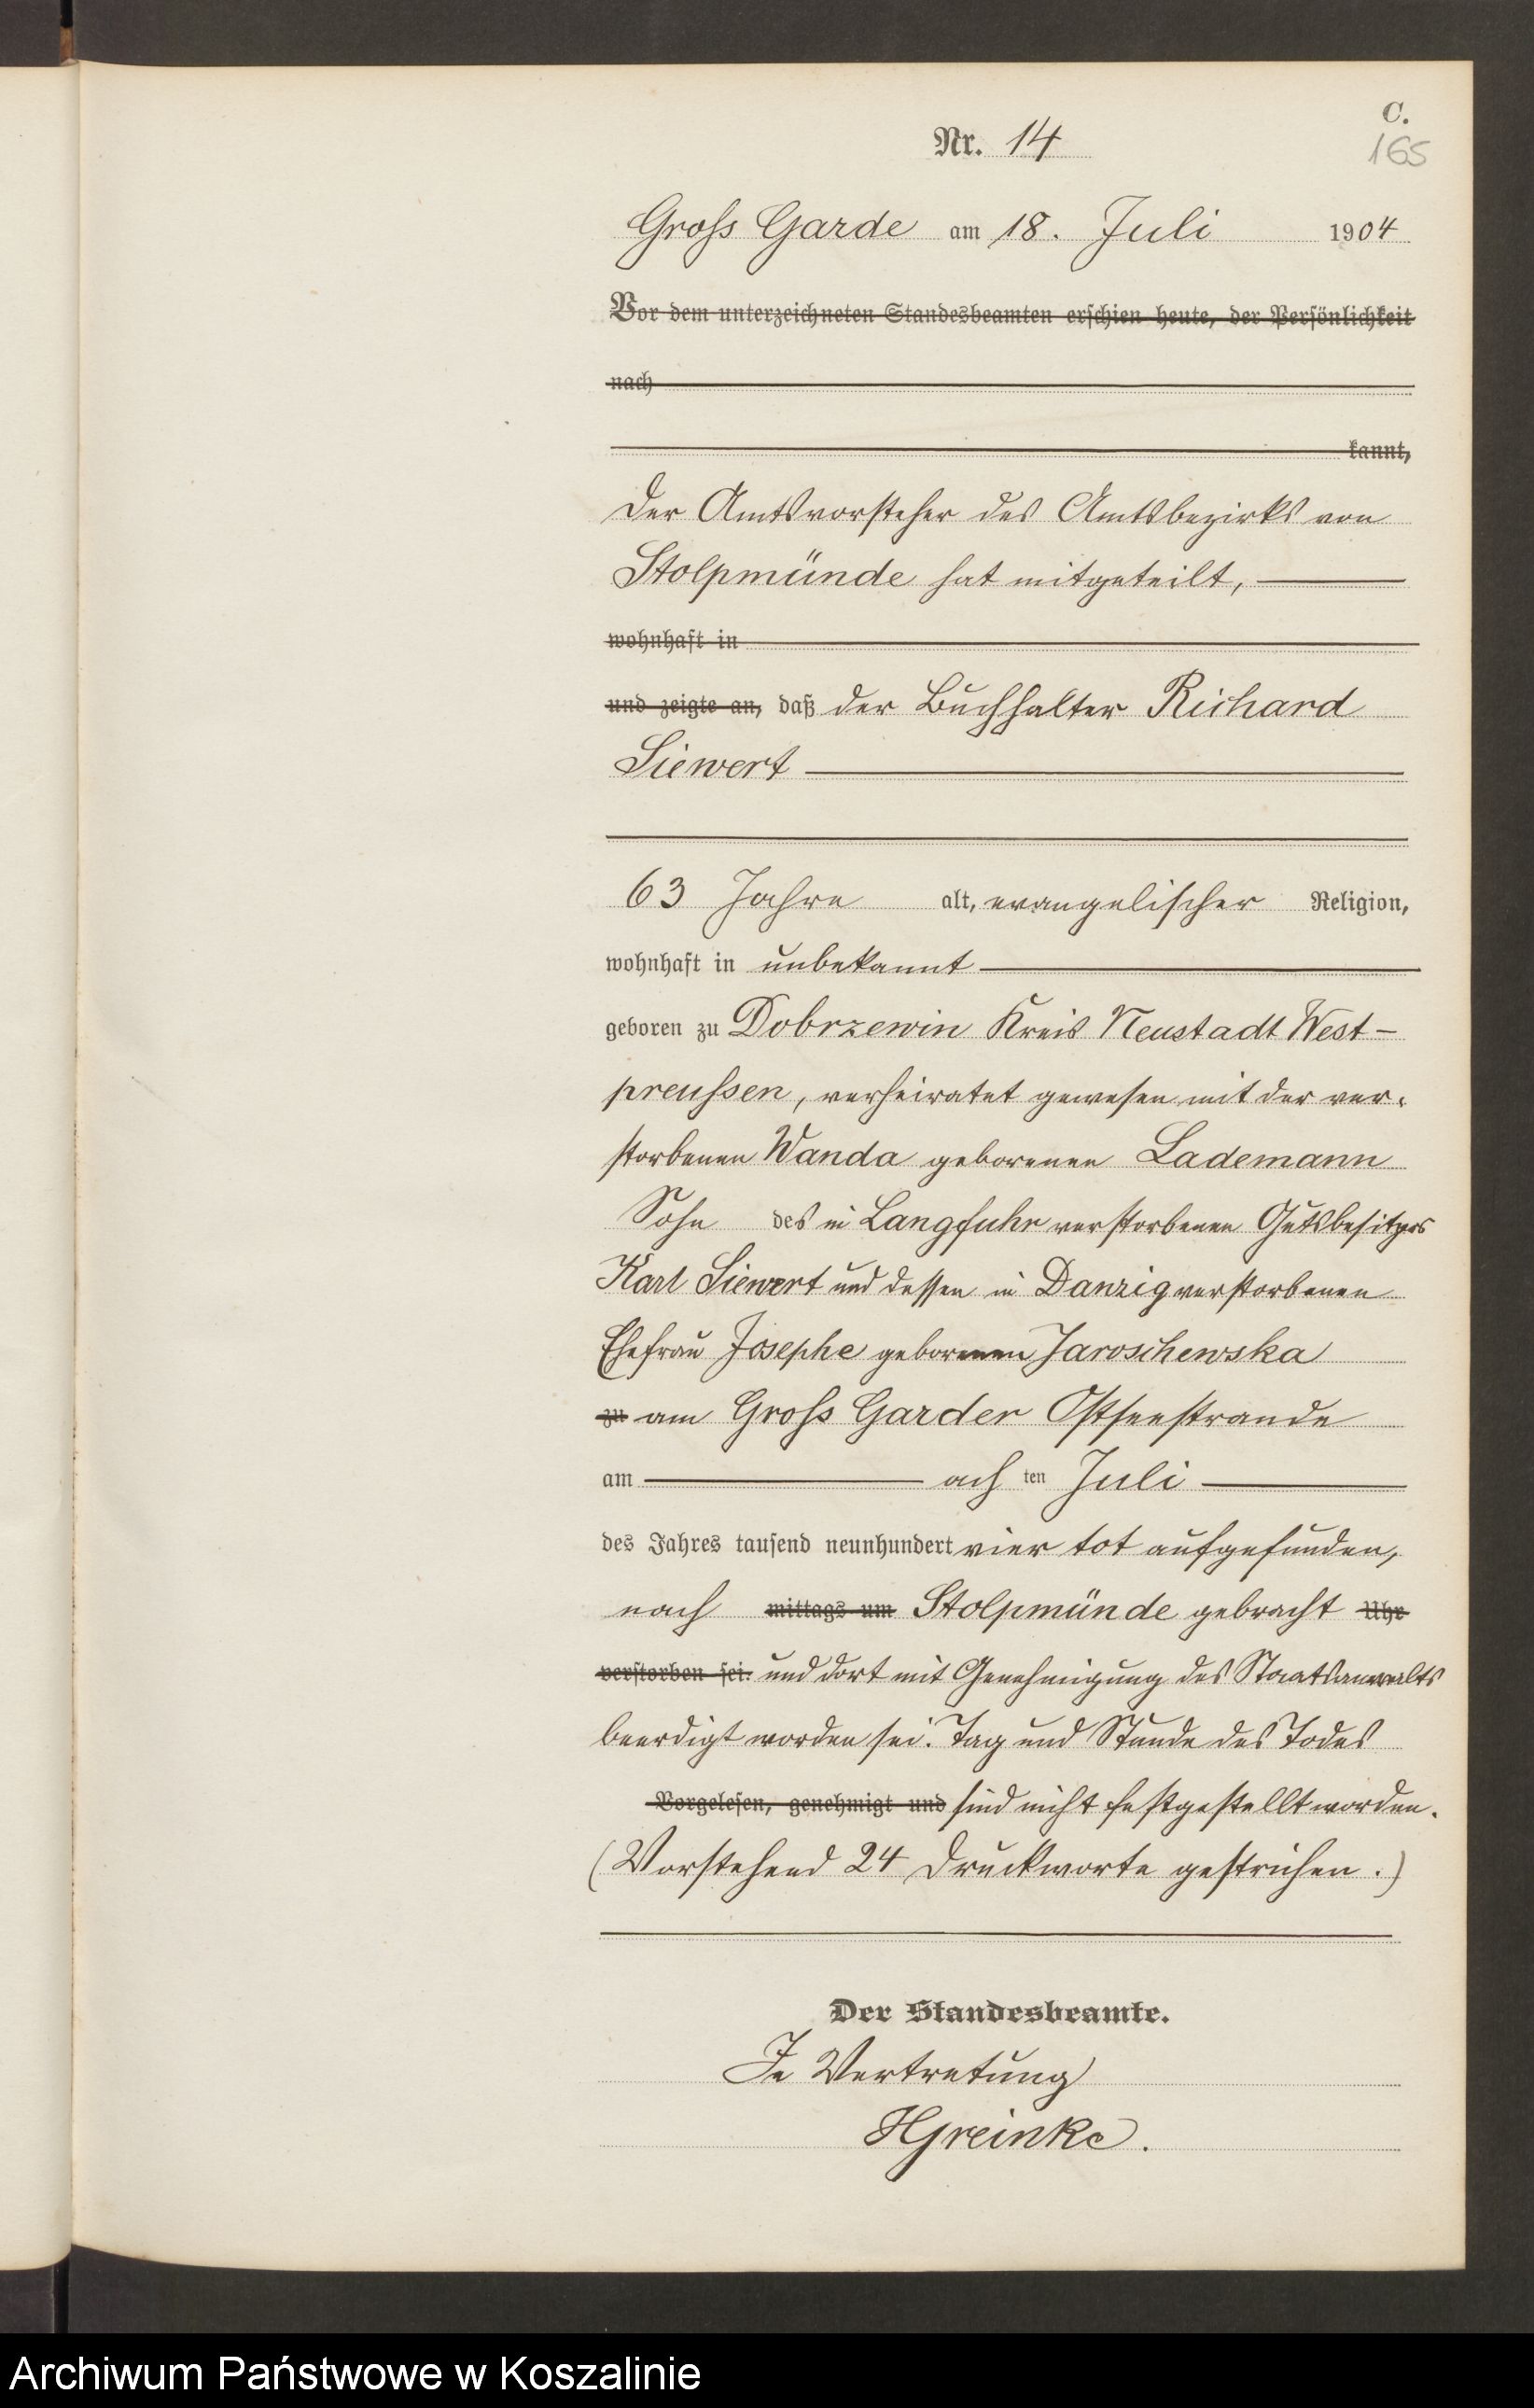 C.
Nr. 14
165
Gross Garde am 18. Juli 1904
Vor dem unterzeichneten Standesbeamten erschien heute, der Persönlichkeit
nach
kannt,
Der Amtsvorsteher des Amtsbezirks von
Stolpmünde hat mitgeteilt,
wohnhaft in
und zeigte an, daß der Buchhalter Richard
Siewert
63 Jahre alt, evangelischer Religion,
wohnhaft in unbekannt
geboren zu Dobrzewin Kreis Neustadt West-
preussen, verheiratet gewesen mit der ver-
storbenen Wanda geborenen Lademann
Sohn des in Langfuhr verstorbenen Gutsbesitzers
Karl Siewert und dessen in Danzig verstorbenen
Ehefrau Josephe geborenen Jaroschewska
zu am Gross Garder Ostseestrande
am ach ten Juli
des Jahres tausend neunhundert vier tot aufgefunden,
nach mittags um Stolpmünde gebracht Uhr
verstorben sei. und dort mit Genehmigung des Staatsanwalts
beerdigt worden sei. Tag und Stunde des Todes
Vorgelesen, genehmigt und sind nicht festgestellt worden.
(Vorstehend 24 Druckworte gestrichen.)
Der Standesbeamte.
In Vertretung
HGreinke.
Archiwum Państwowe w Koszalinie